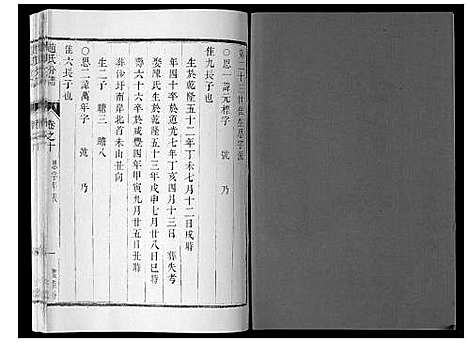 第二十三世生生恩字派
○恩一諱元標字 號 乃
隹九長子也
生於乾隆五十二年丁未七月十二日戌時
年四十卒於道光七年丁亥四月十三日葬失考
娶陳氏生於乾隆五十三年戊申七月廿八日巳時
壽六十六卒於咸豐四年甲寅九月廿五日丑時
葬砂圩南岸北首未山丑向
亡子二 贍三 贍八
○恩二諱萬年字 號 乃
隹六長子也
趙氏分譜
卷之十